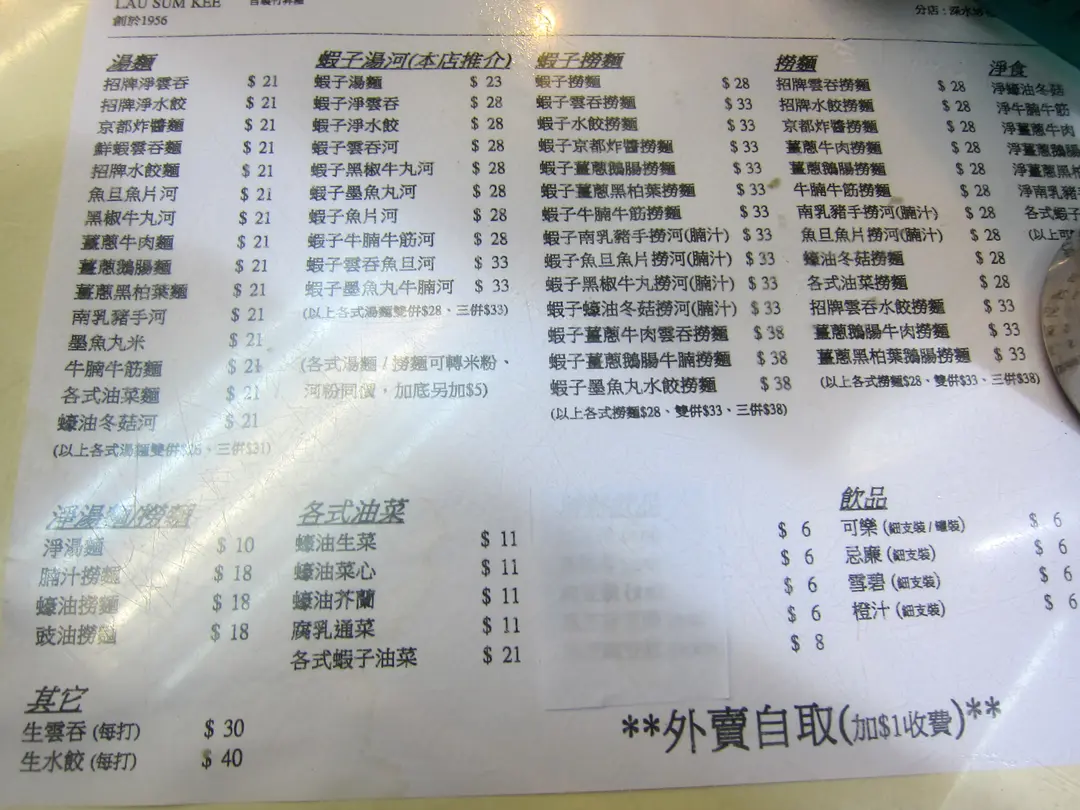 LAU SUM KEE
創於1956
湯麵
招牌淨雲吞 $ 21
招牌淨水餃 $ 21
京都炸醬麵 $ 21
鮮蝦雲吞麵 $ 21
招牌水餃麵 $ 21
魚旦魚片河 $ 21
黑椒牛丸河 $ 21
薑蔥牛肉麵 $ 21
薑蔥鵝腸麵 $ 21
薑蔥黑柏葉麵 $ 21
南乳豬手河 $ 21
墨魚丸米 $ 21
牛腩牛筋麵 $ 21
各式油菜麵 $ 21
蠔油冬菇河 $ 21
(以上各式湯麵雙併$26、三併$31)
蝦子湯河(本店推介)
蝦子湯麵 $ 23
蝦子淨雲吞 $ 28
蝦子淨水餃 $ 28
蝦子雲吞河 $ 28
蝦子黑椒牛丸河 $ 28
蝦子墨魚丸河 $ 28
蝦子魚片河 $ 28
蝦子牛腩牛筋河 $ 28
蝦子雲吞魚旦河 $ 33
蝦子墨魚丸牛腩河 $ 33
(以上各式湯麵雙併$28、三併$33)
(各式湯麵 / 撈麵可轉米粉、
河粉同價，加底另加$5)
蝦子撈麵
蝦子撈麵 $ 28
蝦子雲吞撈麵 $ 33
蝦子水餃撈麵 $ 33
蝦子京都炸醬撈麵 $ 33
蝦子薑蔥鵝腸撈麵 $ 33
蝦子薑蔥黑柏葉撈麵 $ 33
蝦子牛腩牛筋撈麵 $ 33
蝦子南乳豬手撈河(腩汁) $ 33
蝦子魚旦魚片撈河(腩汁) $ 33
蝦子黑椒牛丸撈河(腩汁) $ 33
蝦子蠔油冬菇撈河(腩汁) $ 33
蝦子薑蔥牛肉雲吞撈麵 $ 38
蝦子薑蔥鵝腸牛腩撈麵 $ 38
蝦子墨魚丸水餃撈麵 $ 38
(以上各式撈麵$28、雙併$33、三併$38)
撈麵
招牌雲吞撈麵 $ 28
招牌水餃撈麵 $ 28
京都炸醬撈麵 $ 28
薑蔥牛肉撈麵 $ 28
薑蔥鵝腸撈麵 $ 28
牛腩牛筋撈麵 $ 28
南乳豬手撈河(腩汁) $ 28
魚旦魚片撈河(腩汁) $ 28
蠔油冬菇撈麵 $ 28
各式油菜撈麵 $ 28
招牌雲吞水餃撈麵 $ 33
薑蔥鵝腸牛肉撈麵 $ 33
薑蔥黑柏葉鵝腸撈麵 $ 33
(以上各式撈麵$28、雙併$33、三併$38)
淨食
淨蠔油冬菇
淨牛腩牛筋
淨薑蔥牛肉
淨薑蔥鵝腸
淨薑蔥黑
淨南乳豬手
各式蝦子
淨湯麵/撈麵
淨湯麵 $ 10
腩汁撈麵 $ 18
蠔油撈麵 $ 18
豉油撈麵 $ 18
各式油菜
蠔油生菜 $ 11
蠔油菜心 $ 11
蠔油芥蘭 $ 11
腐乳通菜 $ 11
各式蝦子油菜 $ 21
$ 6
$ 6
$ 6
$ 6
$ 8
飲品
可樂 (細支裝 / 罐裝) $ 6
忌廉 (細支裝) $ 6
雪碧 (細支裝) $ 6
橙汁 (細支裝) $ 6
其它
生雲吞 (每打) $ 30
生水餃 (每打) $ 40
**外賣自取(加$1收費)**